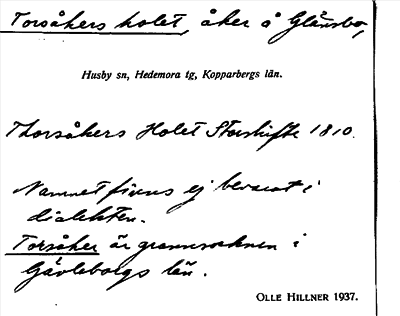 Torsåkers holet, åker å Glänsbo,
Husby sn, Hedemora tg, Kopparbergs län.
Thorsåkers Holet Storskifte 1810.
Namnet finns ej bevarat i
dialekten.
Torsåker är grannsocknen i
Gävleborgs län.
OLLE HILLNER 1937.